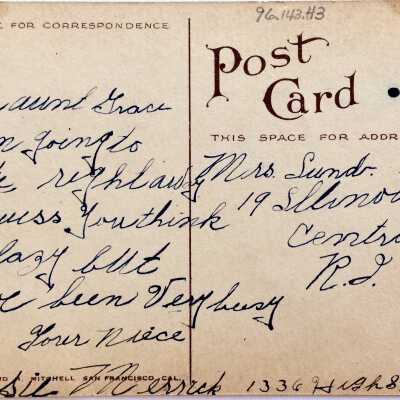 96.143.43
E FOR CORRESPONDENCE
Post
Card
THIS SPACE FOR ADDR
aunt Grace
going to
right away
guess You think
lazy but
been Very busy
Your Niece
Mrs. Lund.
19 Illinois
Centra
R.I.
MITCHELL SAN FRANCISCO, CAL.
Merrick 1336 High S